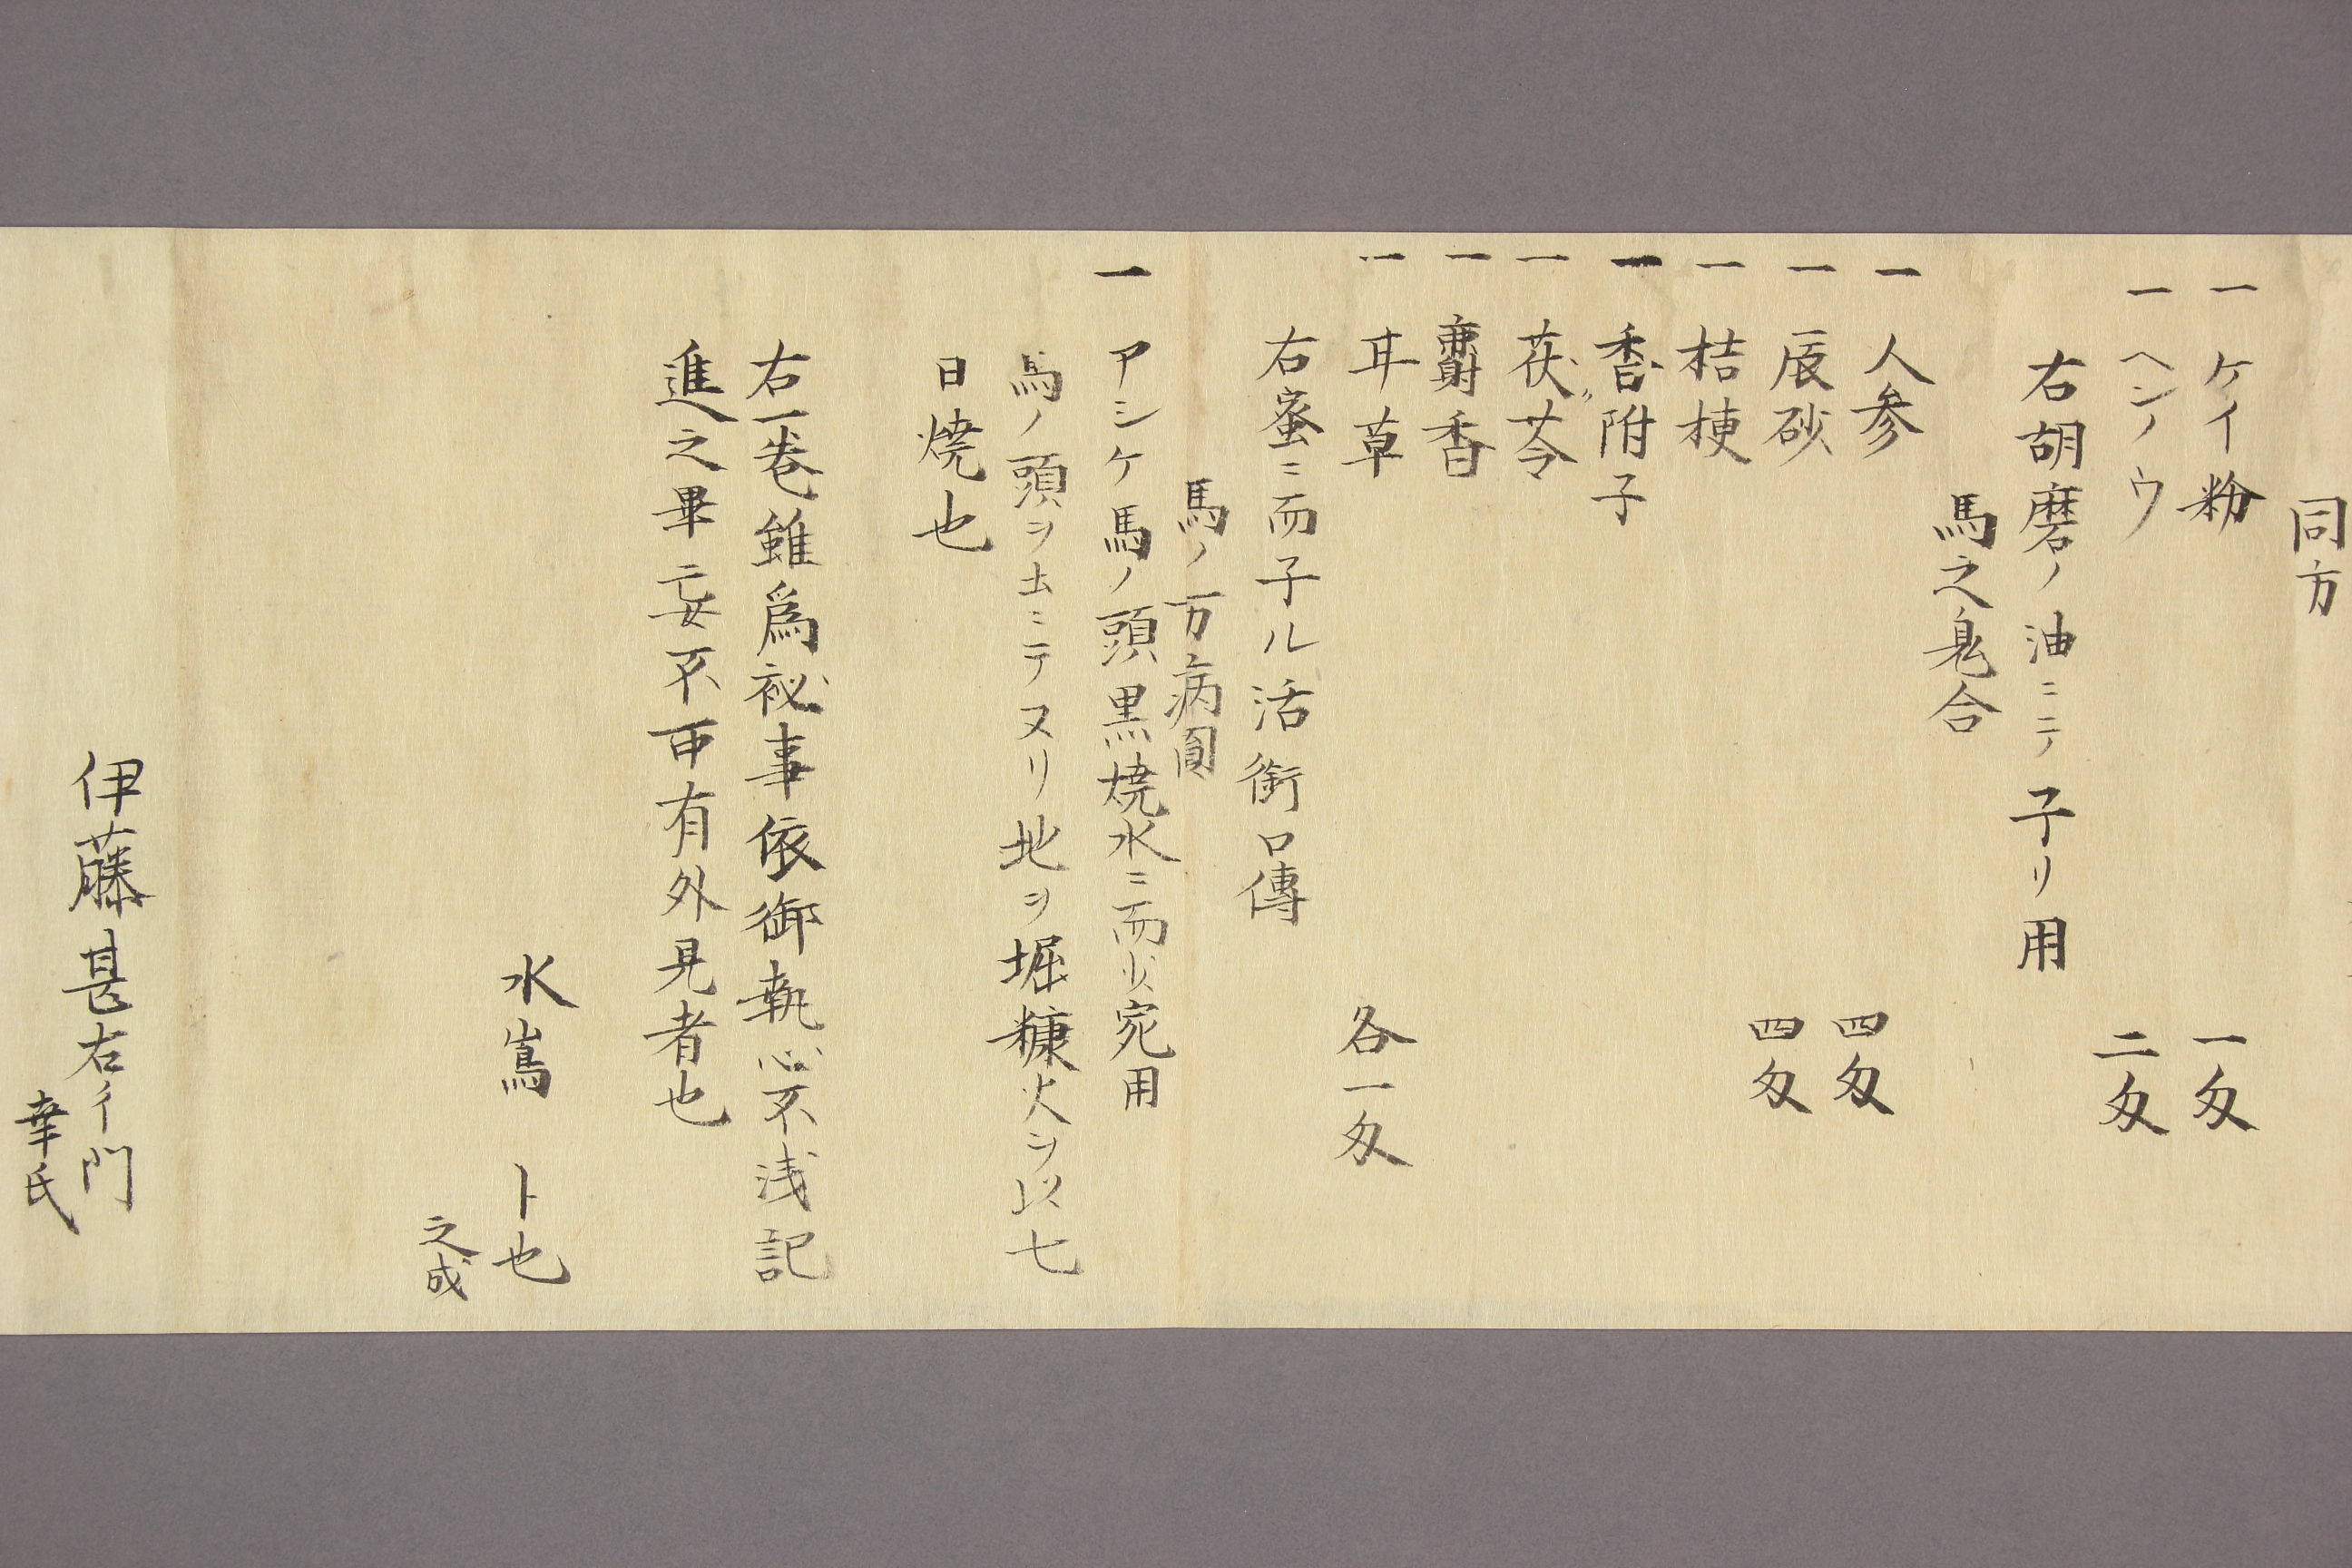 同方
一 ケイ粉 一匁
一 ヘンノウ 二匁
右胡磨ノ油ニテ子リ用
馬之息合
一 人参 四匁
一 辰砂 四匁
一 桔梗
一 香附子
一 茯苓
一 麝香
一 耳草 各一匁
右蜜ニ而子ル活銜口傳
馬ノ万病圓
一 アシケ馬ノ頭黒焼水ニ而少宛用
馬ノ頭ヲ土ニテヌリ地ヲ堀糠火ヲ以七
日焼也
右一巻雖為秘事依御執心不浅記
進之畢妄不可有外見者也
水嶌 卜也
之成
伊藤甚右衛門
幸氏